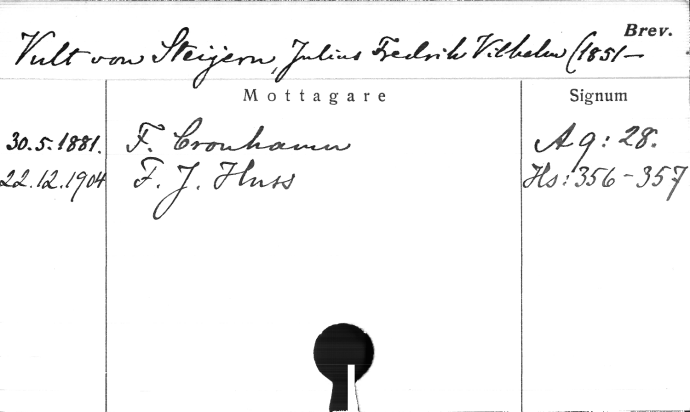 Brev.
Vult von Steijern, Julius Fredrik Vilhelm (1851-
Mottagare Signum
30.5.1881. F. Cronhamn Ag: 28.
22.12.1904 F. J. Huss Hs: 356-357